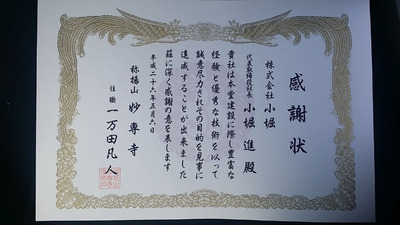 感謝状
株式会社 小堀
代表取締役社長 小堀 進 殿
貴社は本堂建設に際し豊富な
経験と優秀な技術を以って
誠意尽力されその目的を見事に
達成することが出来ました
茲に深く感謝の意を表します
平成二十六年五月六日
称揚山 妙専寺
住職 一万田凡人